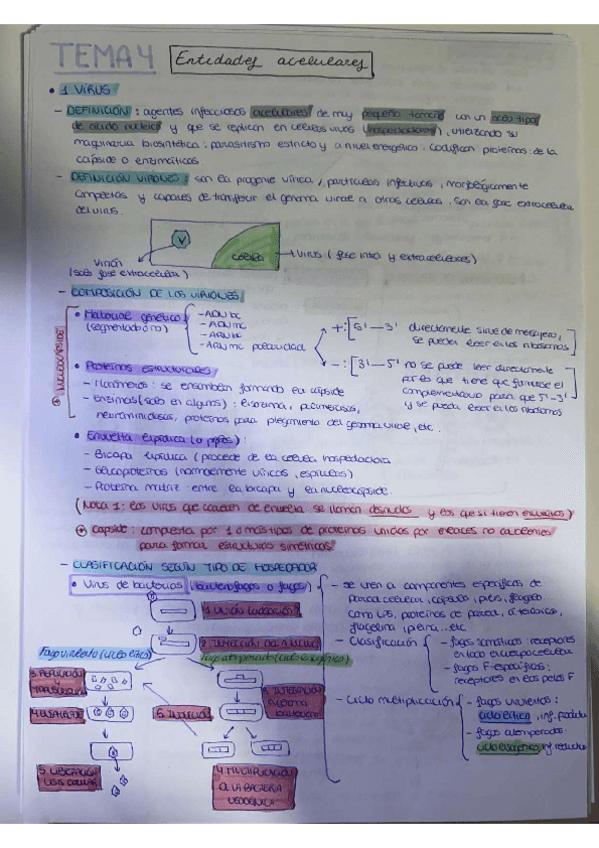 TEMA 4 Entidades acelulares
• 1 VIRUS
- DEFINICIÓN: agentes infecciosos acelulares de muy pequeño tamaño con un solo tipo
de ácido nucleico y que se replican en células vivas (hospedadoras), utilizando su
maquinaria biosintética: parasitismo estricto y a nivel energético. Codifican proteínas: de la
cápside o enzimáticas.
- DEFINICIÓN VIRIONES: son la progenie vírica, partículas infectivas, morfológicamente
completas y capaces de transferir el genoma viral a otras células. Son la fase extracelular
del virus.
célula
virus (fase intra y extracelulares)
Virión
(solo fase extracelular)
- COMPOSICIÓN DE LOS VIRIONES
nucleocápside
• Material genético
(segmentado o no)
- ADN bc
- ADN mc
- ARN bc
- ARN mc polaridad
+: [5' — 3' directamente sirve de mensajero,
se pueden leer en los ribosomas
- : [3' — 5' no se puede leer directamente
por lo que tiene que formarse el
complementario para que 5'-3'
y se pueda leer en los ribosomas
• Proteínas estructurales
- Monómeros: se ensamblan formando la cápside
- Enzimas (solo en algunos): lisozima, polimerasas,
neuraminidasas, proteínas para plegamiento del genoma viral, etc.
• Envuelta lipídica (o peplos):
- Bicapa lipídica (procede de la célula hospedadora
- Glicoproteínas (normalmente víricas, espículas)
- Proteína matriz: entre la bicapa y la nucleocápside.
(Nota 1: los virus que carecen de envuelta se llaman desnudos y los que sí tienen envueltos)
* Cápside: compuesta por 1 o más tipos de proteínas unidas por enlaces no covalentes
para formar estructuras simétricas.
- CLASIFICACIÓN SEGÚN TIPO DE HOSPEDADOR
• Virus de bacterias (bacteriófagos o fagos)
1. UNIÓN (adsorción)
Fago virulento (ciclo lítico)
Fago atemperado (ciclo lisogénico)
5. LIBERACIÓN
LISIS CELULAR
4. MULTIPLICACIÓN
DE LA BACTERIA
LISOGÉNICA
- se unen a componentes específicos de
pared celular, cápsula, pilis, flagelo
como LPS, proteínas de pared, á. teicoico,
flagelina, pilina... etc
- Clasificación
- fagos somáticos: receptores
en
- fagos F-específicos:
receptores en los pelos F
- Ciclo multiplicación
- fagos virulentos:
ciclo lítico, inf.
- fagos atemperados:
ciclo lisogénico, inf.